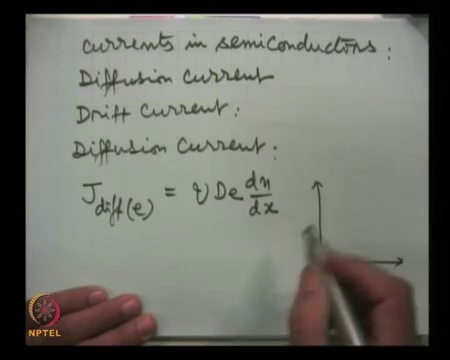 currents in semiconductors:
Diffusion current
Drift Current:
Diffusion Current:
J diff(e) = q De dn/dx
NPTEL